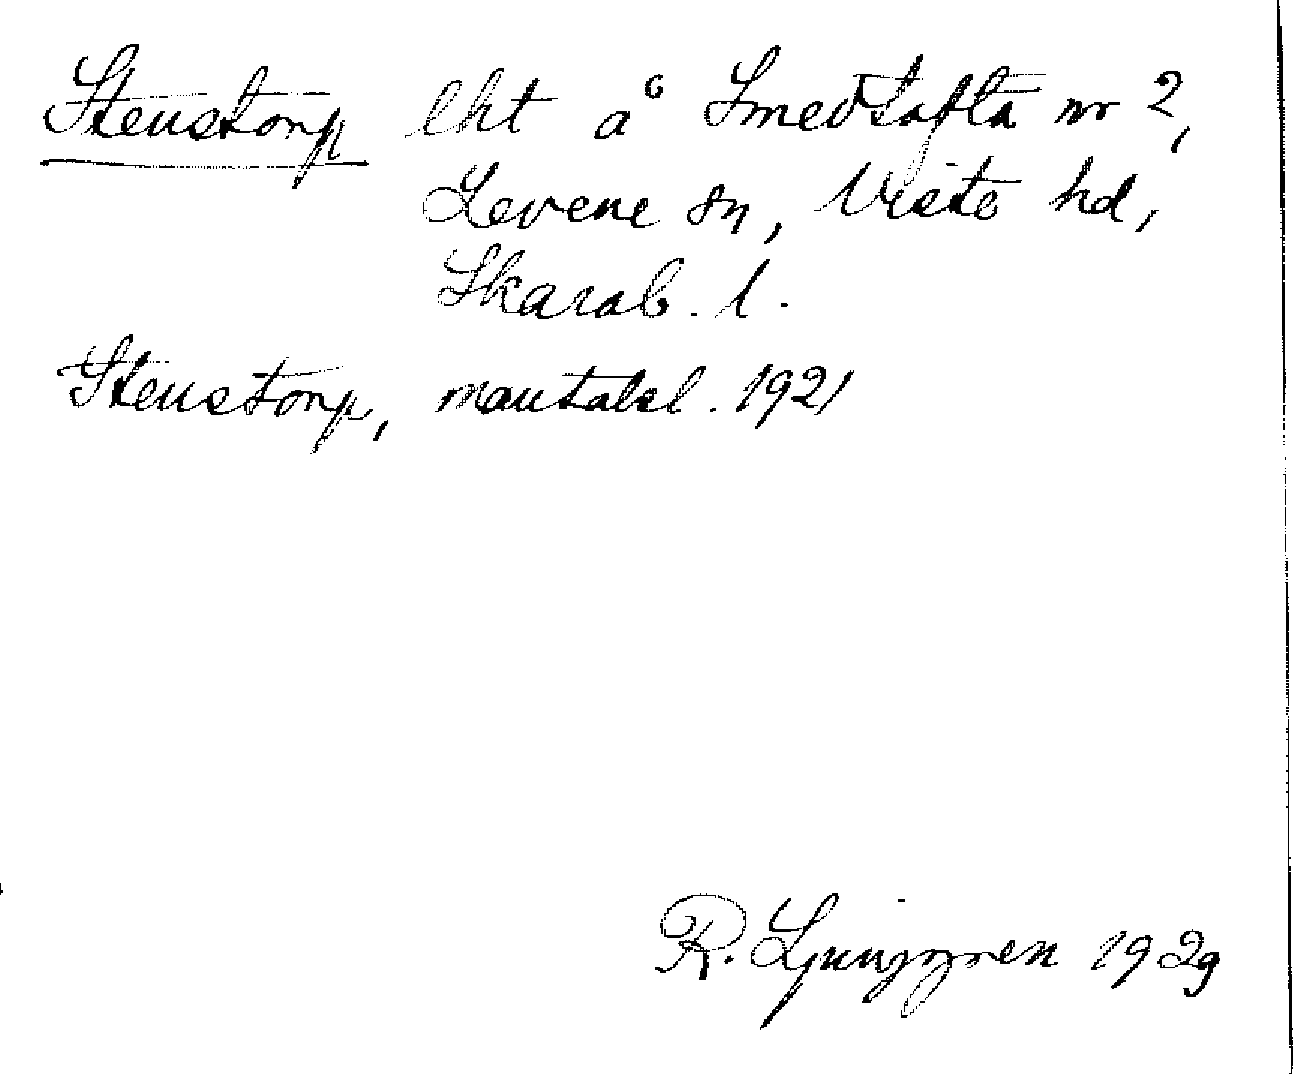 Stenstorp lht å Smedtofta nr 2,
Levene sn, Viste hd,
Skarab. l.
Stenstorp, mantalsl. 1921
R. Ljunggren 1929